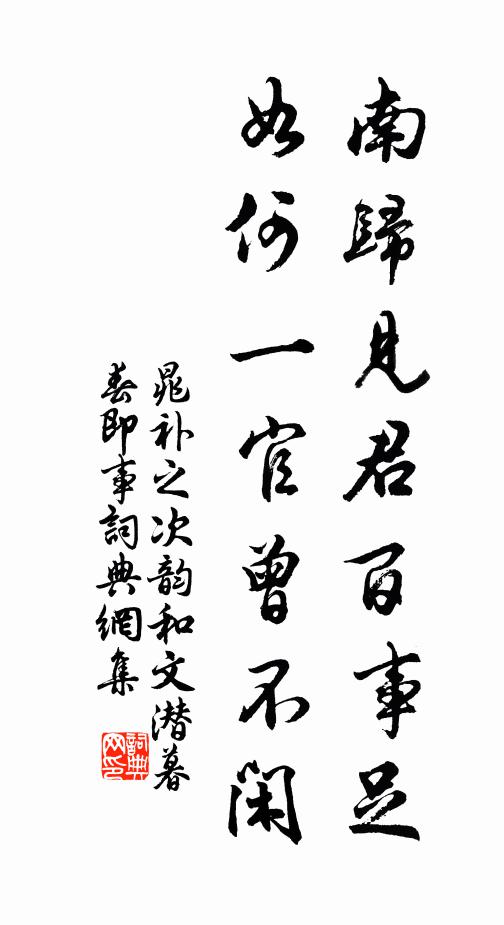 南歸見君百事足
如何一官曾不閑
晁补之次韵和文潜暮
春即事詞典網集
詞典
网印